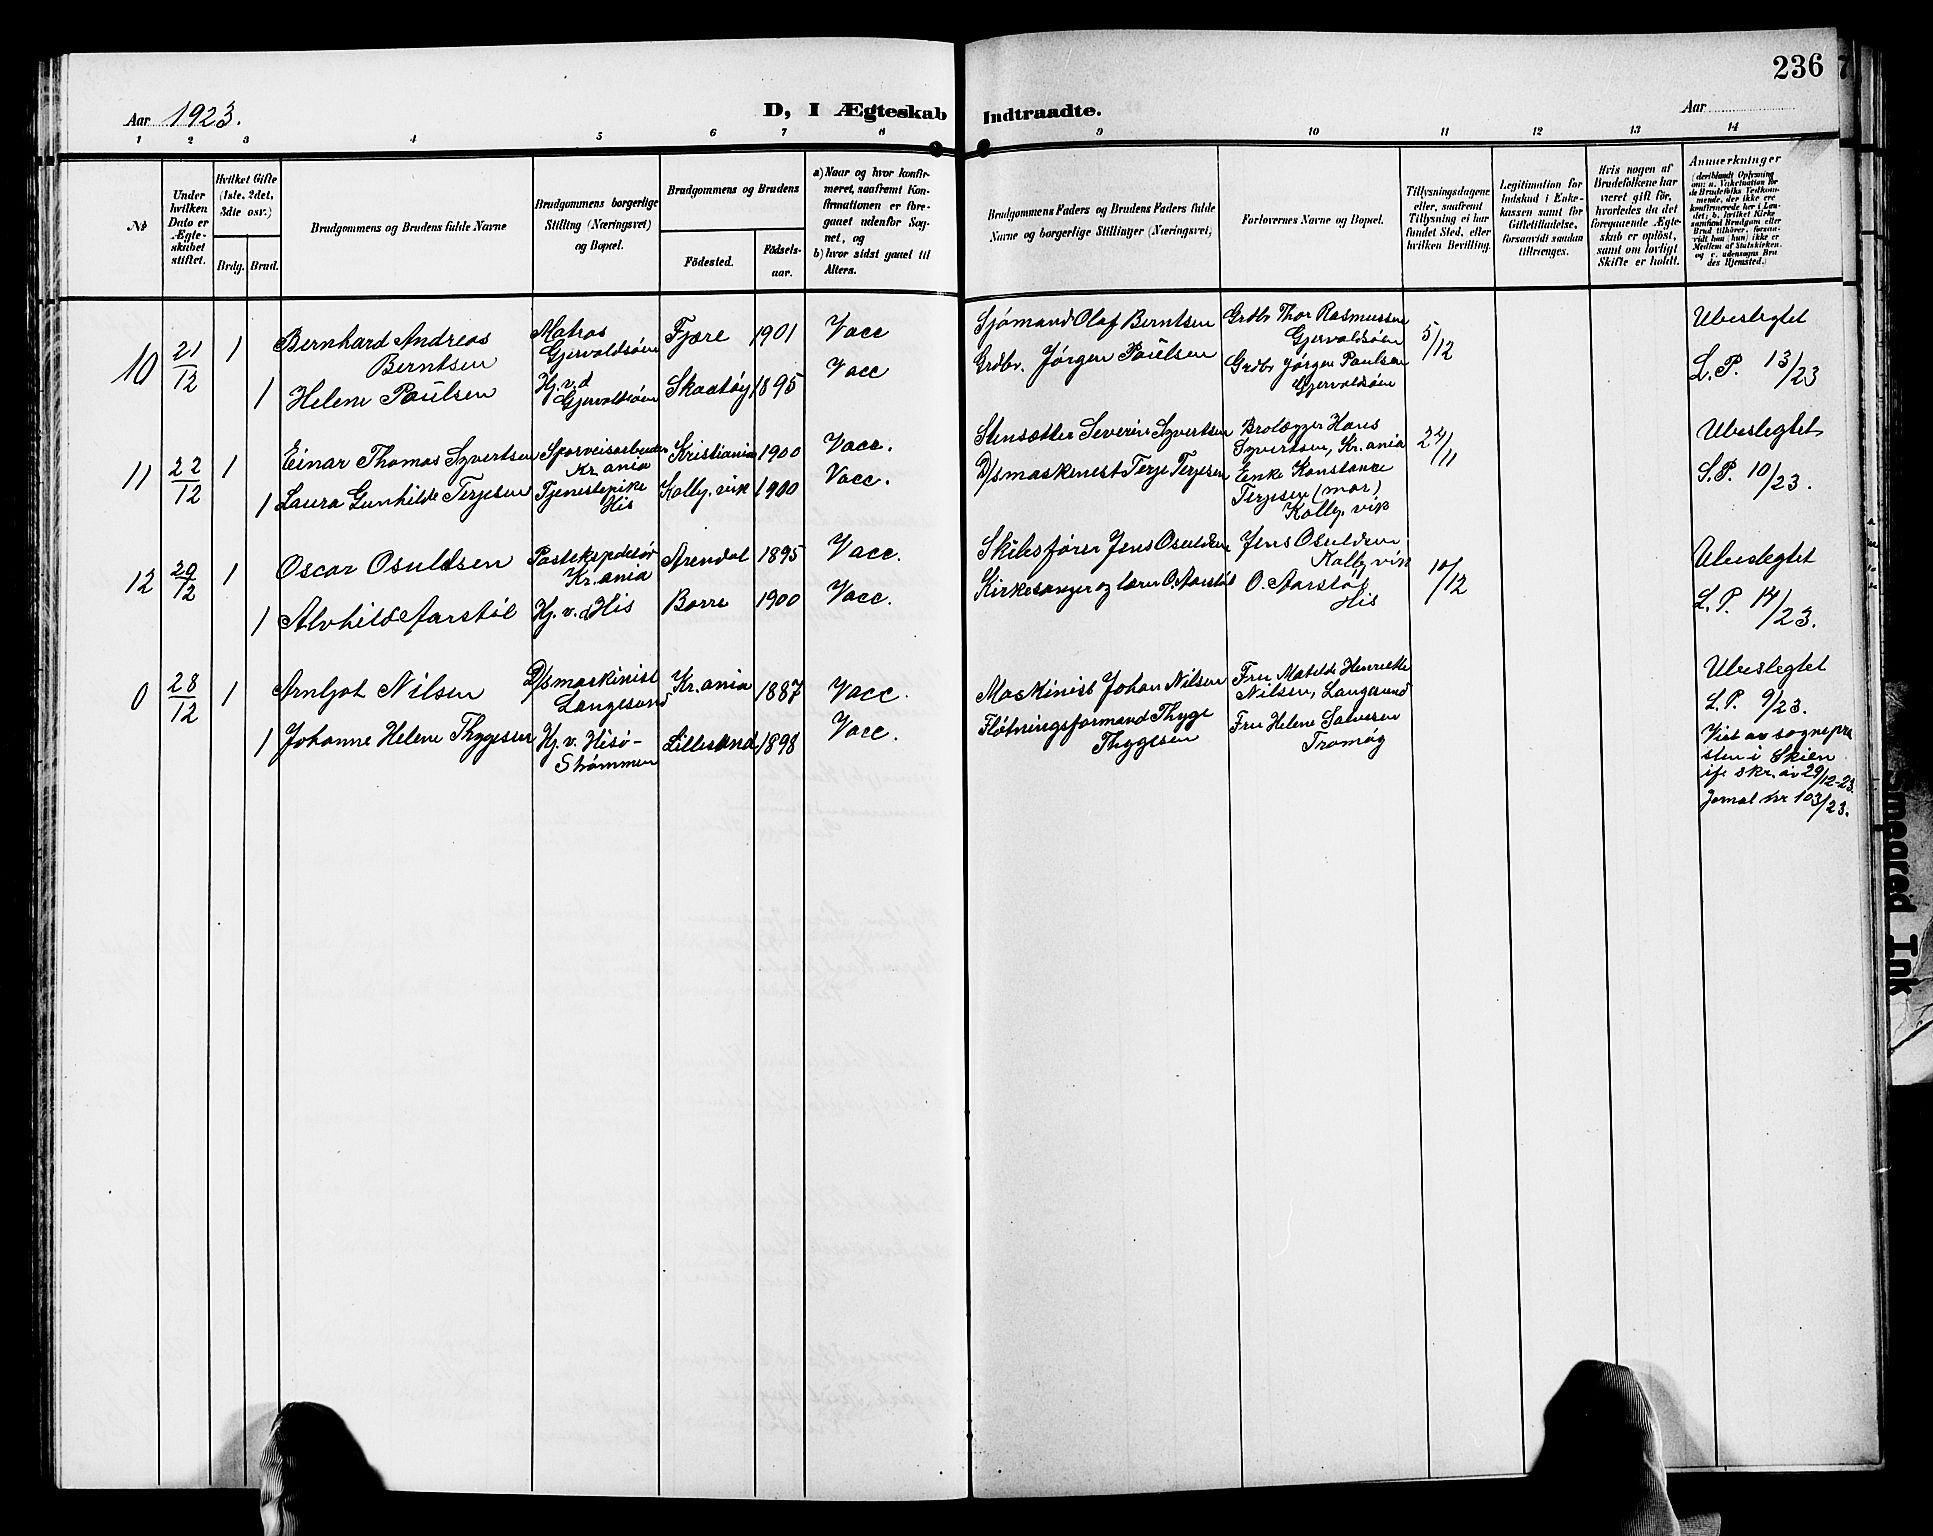 236
Aar 1923.
D, I Ægteskab Indtraadte.
Aar
1 2 3 4 5 6 7 8 9 10 11 12 13 14
No
Under hvilken Dato er Ægteskabet stiftet.
Hvilket Gifte (1ste, 2det, 3die osv.)
Brdg. Brud.
Brudgommens og Brudens fulde Navne
Brudgommens borgerlige Stilling (Næringsvei) og Bopæl.
Brudgommens og Brudens
Fødested.
Fødselsaar.
a) Naar og hvor konfirmeret, saafremt Konfirmationen er foregaaet udenfor Sognet, og
b) hvor sidst gaaet til Alters.
Brudgommens Faders og Brudens Faders fulde Navne og borgerlige Stillinger (Næringsvei)
Forlovernes Navne og Bopæl.
Tillysningsdagene eller, saafremt Tillysning ei har fundet Sted, efter hvilken Bevilling.
Legitimation for Indskud i Enkekassen samt for Giftetilladelse, forsaavidt saadan tiltrænges.
Hvis nogen af Brudefolkene har været gift før, hvorledes da det foregaaende Ægteskab er opløst, samt om lovligt Skifte er holdt.
Anmerkninger (deriblandt Oplysning om: a. Vakcination for de Brudefolks Vedkommende, der ikke ere konfirmerede her i Landet; b. hvilket Kirkesamfund Brudgom eller Brud tilhører, forsaavidt han (hun) ikke er Medlem af Statskirken, og c. udensogns Brudes Hjemsted.)
10 21/12 1 Bernhard Andreas Berntsen
Matros Gjervoldsøen
Fjære 1901 Vacc
Sjømand Olaf Berntsen
Grdbr Thor Rasmussen Gjervoldsøen
5/12
Ubeslegtet
L. P. 13/23
1 Helene Paulsen
Hj. v. d Gjervoldsøen
Skaatøy 1895 Vacc
Grdbr. Jørgen Paulsen
Grdbr Jørgen Paulsen Gjervoldsøen
11 22/12 1 Einar Thomas Syvertsen
Sporveisarbeider Kr.ania
Kristiania 1900 Vacc.
Stensætter Severin Syvertsen
Brolægger Hans Syvertsen, Kr.ania
Ubeslegtet
L.P. 10/23.
1 Laura Gunhilde Terjesen
Tjenestepike His
Kolbj.vik 1900 Vacc.
D/smaskinist Terje Terjesen
Enke Konstance Terjesen (mor) Kolbj.vik
12 29/12 1 Oscar Osuldsen
Postekspeditør Kr.ania
Arendal 1895 Vacc.
Skibsfører Jens Osuldsen
Jens Osuldsen Kolbj.vik
Ubeslegtet
L. P. 14/23.
1 Alvhilde Aarstøl
Hj. v. d His
Borre 1900 Vacc.
Kirkesanger og lærer O. Aarstøl
O. Aarstøl His
0 28/12 1 Arnljot Nilsen
D/smaskinist Langesund
Kr.ania 1887 Vacc.
Maskinist Johan Nilsen
Fru Matelde Henriette Nilsen, Langesund
Ubeslegtet
L. P. 9/23.
1 Johanne Helene Thygesen
Hj. v. Hisø-Strømmen
Lillesand 1898 Vacc.
Fløtningsformand Thyge Thygesen
Fru Helene Salvesen Tromøy
Viet av sognepresten i Skien
ifø skr. av 29/12-23.
Jornal nr 103/23.
Smeared Ink